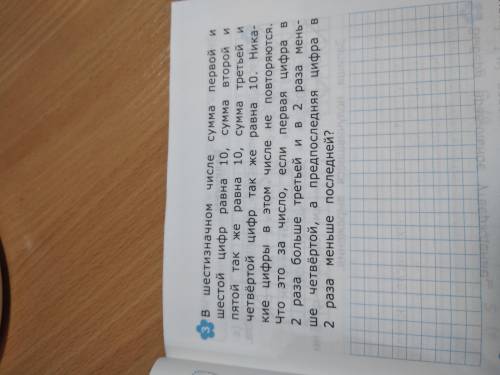 3 В шестизначном числе сумма первой и
шестой цифр равна 10, сумма второй и
пятой так же равна 10, сумма третьей и
четвёртой цифр так же равна 10. Ника-
кие цифры в этом числе не повторяются.
Что это за число, если первая цифра в
2 раза больше третьей и в 2 раза мень-
ше четвёртой, а предпоследняя цифра в
2 раза меньше последней?